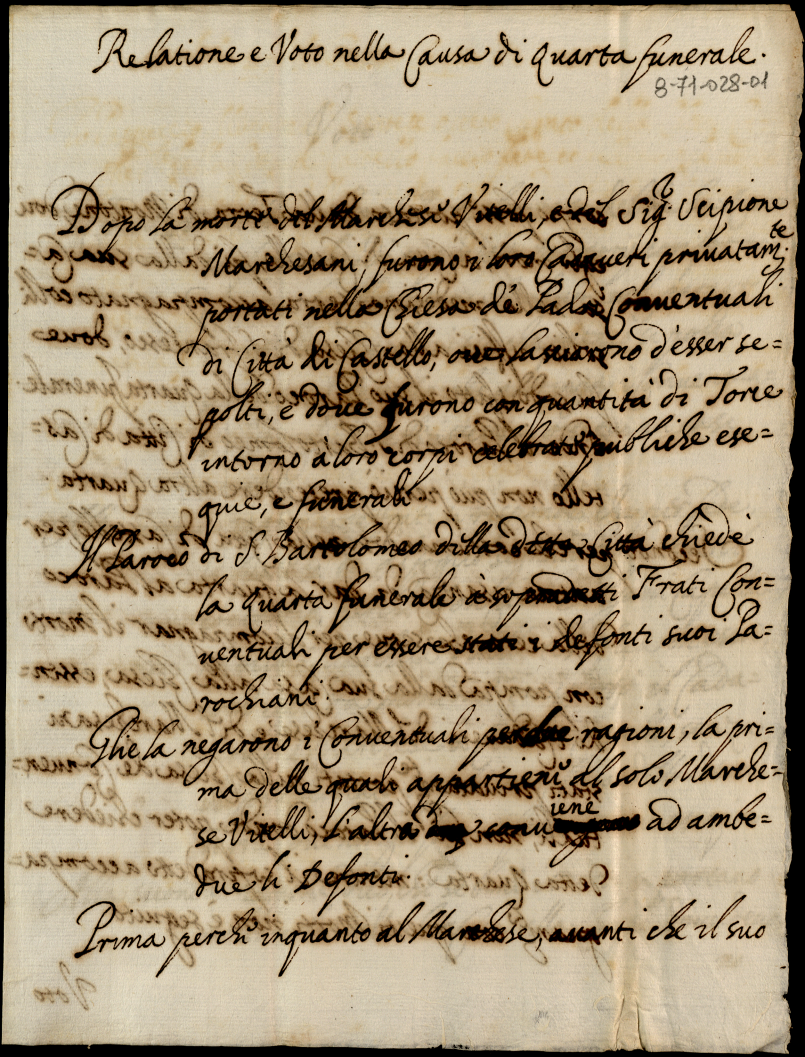 Relatione e Voto nella Causa di Quarta funerale.
8-71-028-01
Dopo la morte del Marchese Vitelli, e del Sigr. Scipione
Marchesani, furono i loro Cadaveri privatamte.
portati nella Chiesa de' Padri Conventuali
di Città di Castello, ove lasciorono d'esser se=
polti, e dove furono con quantità di Torce
intorno a' loro corpi celebrate publiche ese=
quie, e funerali
Il Paroco di S. Bartolomeo della detta Città chiede
la Quarta funerale a' sopradetti Frati Con=
ventuali per essere stati i defonti suoi Pa=
rochiani.
Glie la negarono i Conventuali per due ragioni, la pri=
ma delle quali appartiene al solo Marche=
se Vitelli, l'altra conviene ad ambe=
due li Defonti.
Prima perche inquanto al Marchese, avanti che il suo
Voto